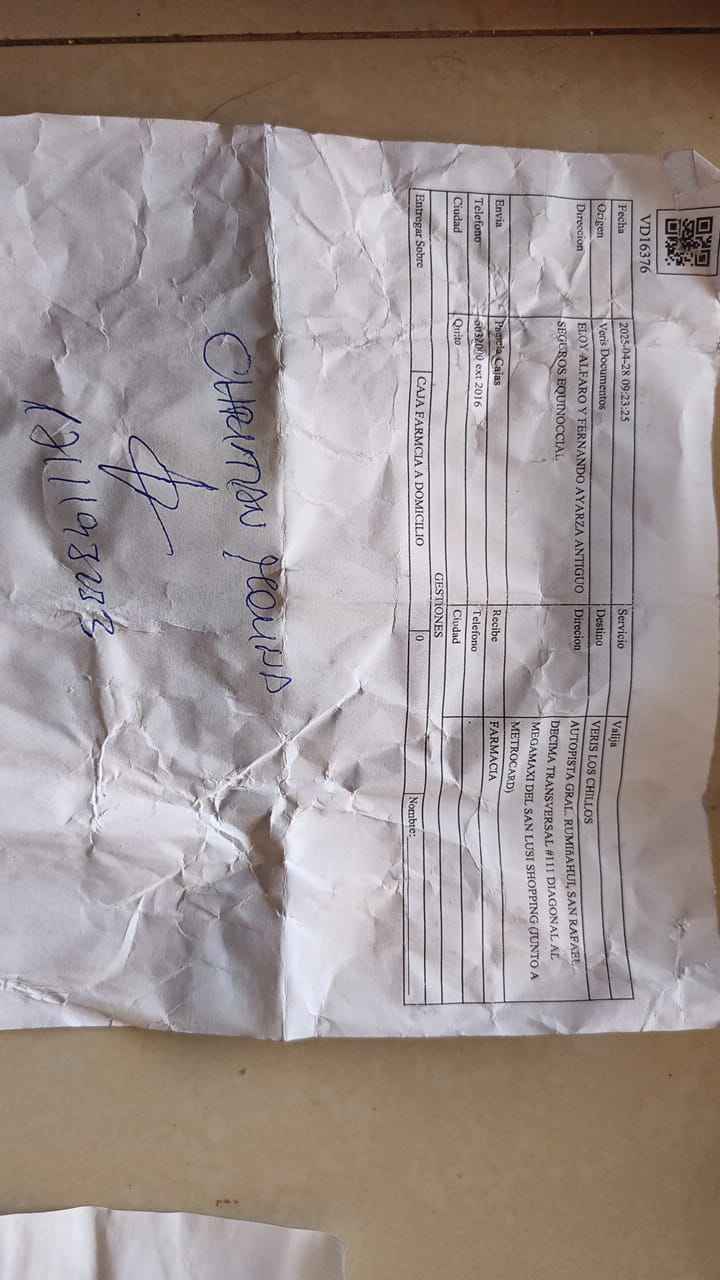 VD16376
Fecha 2025-04-28 09:23:25 Servicio Valija
Origen Veris Documentos Destino VERIS LOS CHILLOS
Direccion ELOY ALFARO Y FERNANDO AYARZA ANTIGUO Direcion AUTOPISTA GRAL. RUMIñAHUI, SAN RAFAEL
SEGUROS EQUINOCCIAL DECIMA TRANSVERSAL #111 DIAGONAL AL
MEGAMAXI DEL SAN LUSI SHOPPING (JUNTO A
METROCARD)
Envia Pamela Cajas Recibe FARMACIA
Telefono ext 2016 Telefono .
Ciudad Quito Ciudad
GESTIONES
Entregar Sobre CAJA FARMCIA A DOMICILIO 0 Nombre: